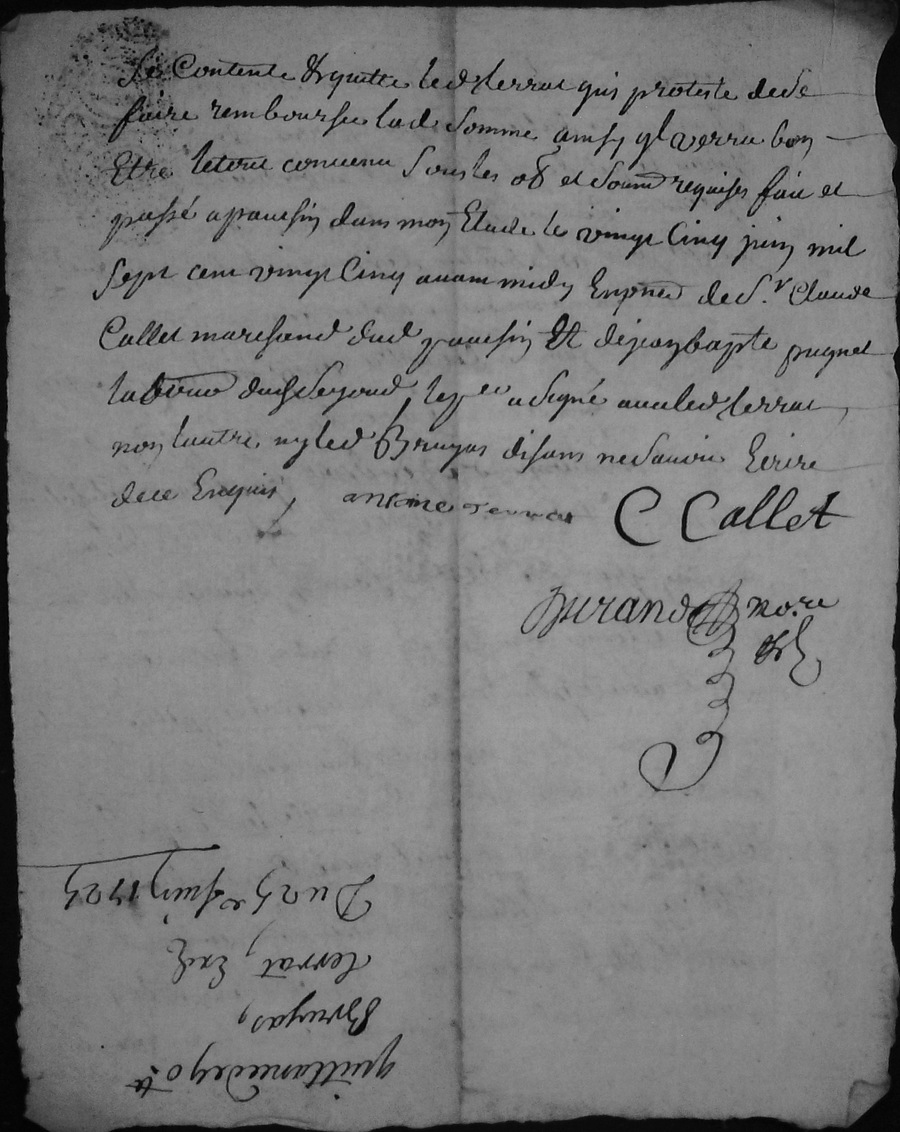 se Contente & quitte led terrat quy proteste dese
faire rembourser lad somme ainsy ql verra bon
Etre letout convenu sous les ob et soum requises fait et
passé apaucsin dans mon Etude le vingt Cinq juin mil
sept cent vingt Cinq avant midy En pnce de Sr Claude
Callet marchand dud et dejean bapte pugnet
le pr a signé avec led terrat
non lautre ny led Bruyas disans ne savoir Ecrire
dece Enquis antoine terrat C Callet
Durand no.re
quittance de
Bruyas
terrat
Du 25e juin 1725